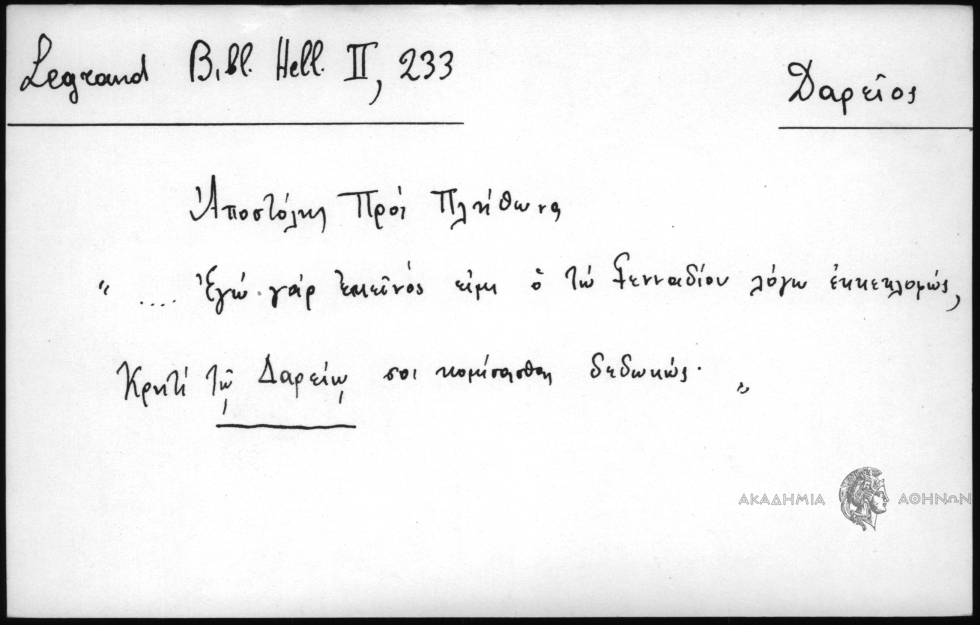 Legrand Bibl. Hell. II, 233
Δαρεῖος
Ἀποστόλης Πρός Πλήθωνα
" .... Ἐγώ γάρ ἐκεῖνός εἰμι ὁ τῷ Γενναδίου λόγῳ ἐγκεκλοφώς,
Κρητί τῷ Δαρείῳ σοι κομίσασθαι δεδωκώς. "
ΑΚΑΔΗΜΙΑ ΑΘΗΝΩΝ